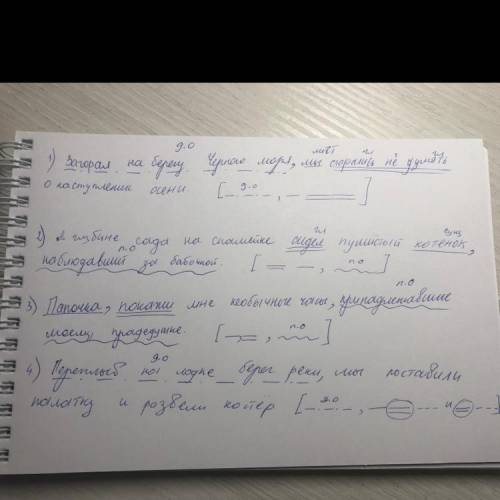 д.о мест гл гл
1) Загорая на берегу Черного моря, мы старались не думать
о наступлении осени. [ д.о , ]
гл сущ
2) В глубине сада на скамейке сидел пушистый котенок,
п.о
наблюдавший за бабочкой. [ , п.о ]
п.о
3) Папочка, покажи мне необычные часы, принадлежавшие
моему прадедушке. [ , п.о ]
д.о
4) Переплыв на лодке берег реки, мы поставили
палатку и развели костёр [ д.о , и ]